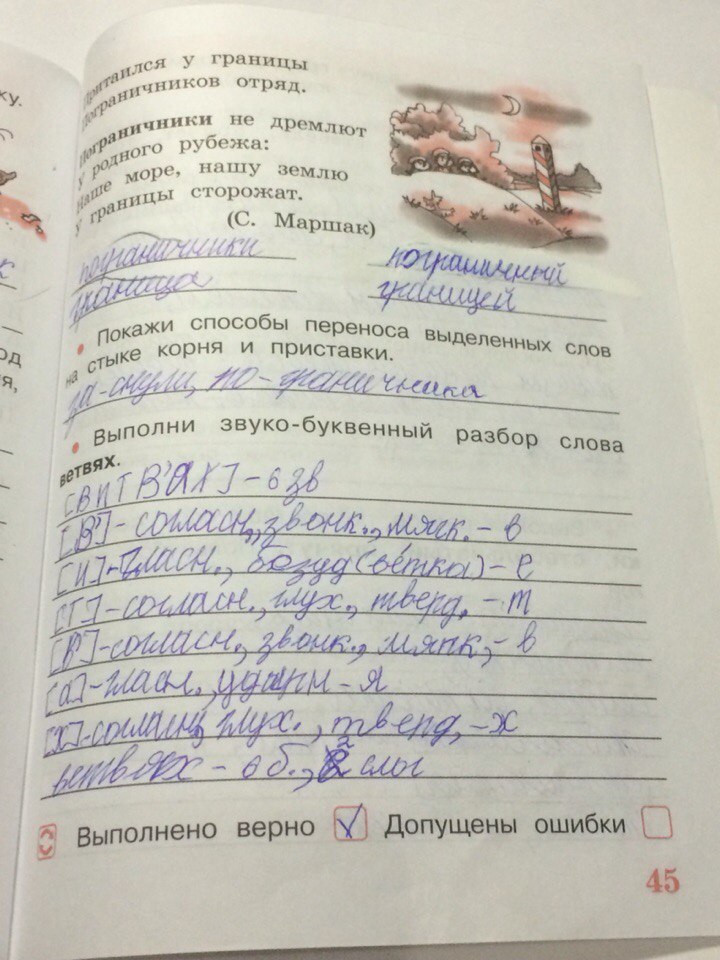 ку.
Притаился у границы
Пограничников отряд.
Пограничники не дремлют
У родного рубежа:
Наше море, нашу землю
У границы сторожат.
(С. Маршак)
пограничники пограничный
граница границей
• Покажи способы переноса выделенных слов
на стыке корня и приставки.
за-снули, по-граничника
• Выполни звуко-буквенный разбор слова
ветвях.
[ВИТВ'АХ] - 6 зв
[В'] - согласн., звонк., мягк. - в
[И] - гласн., безуд (ве́тка) - е
[Т] - согласн., глух., тверд. - т
[В'] - согласн., звонк., мягк, - в
[а] - гласн., ударн - я
[Х] - согласн, глух., тверд, - х
ветвях - 6 б., 2 слог
Выполнено верно Допущены ошибки
45